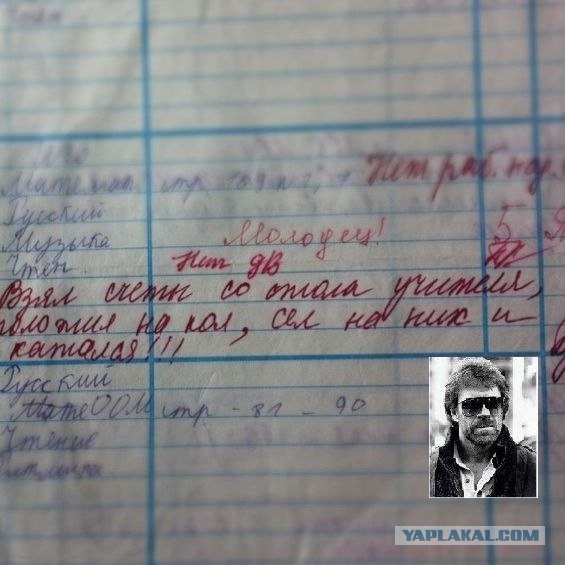 Математ стр 109 н 2, Нет раб. тет.
Русский
Музыка Молодец! 5
Чтен. Нет дв
Взял счеты со стола учителя,
положил на пол, сел на них и
катался!!!
Русский
Матем стр - 81 - 90
Чтение
YAPLAKAL.COM